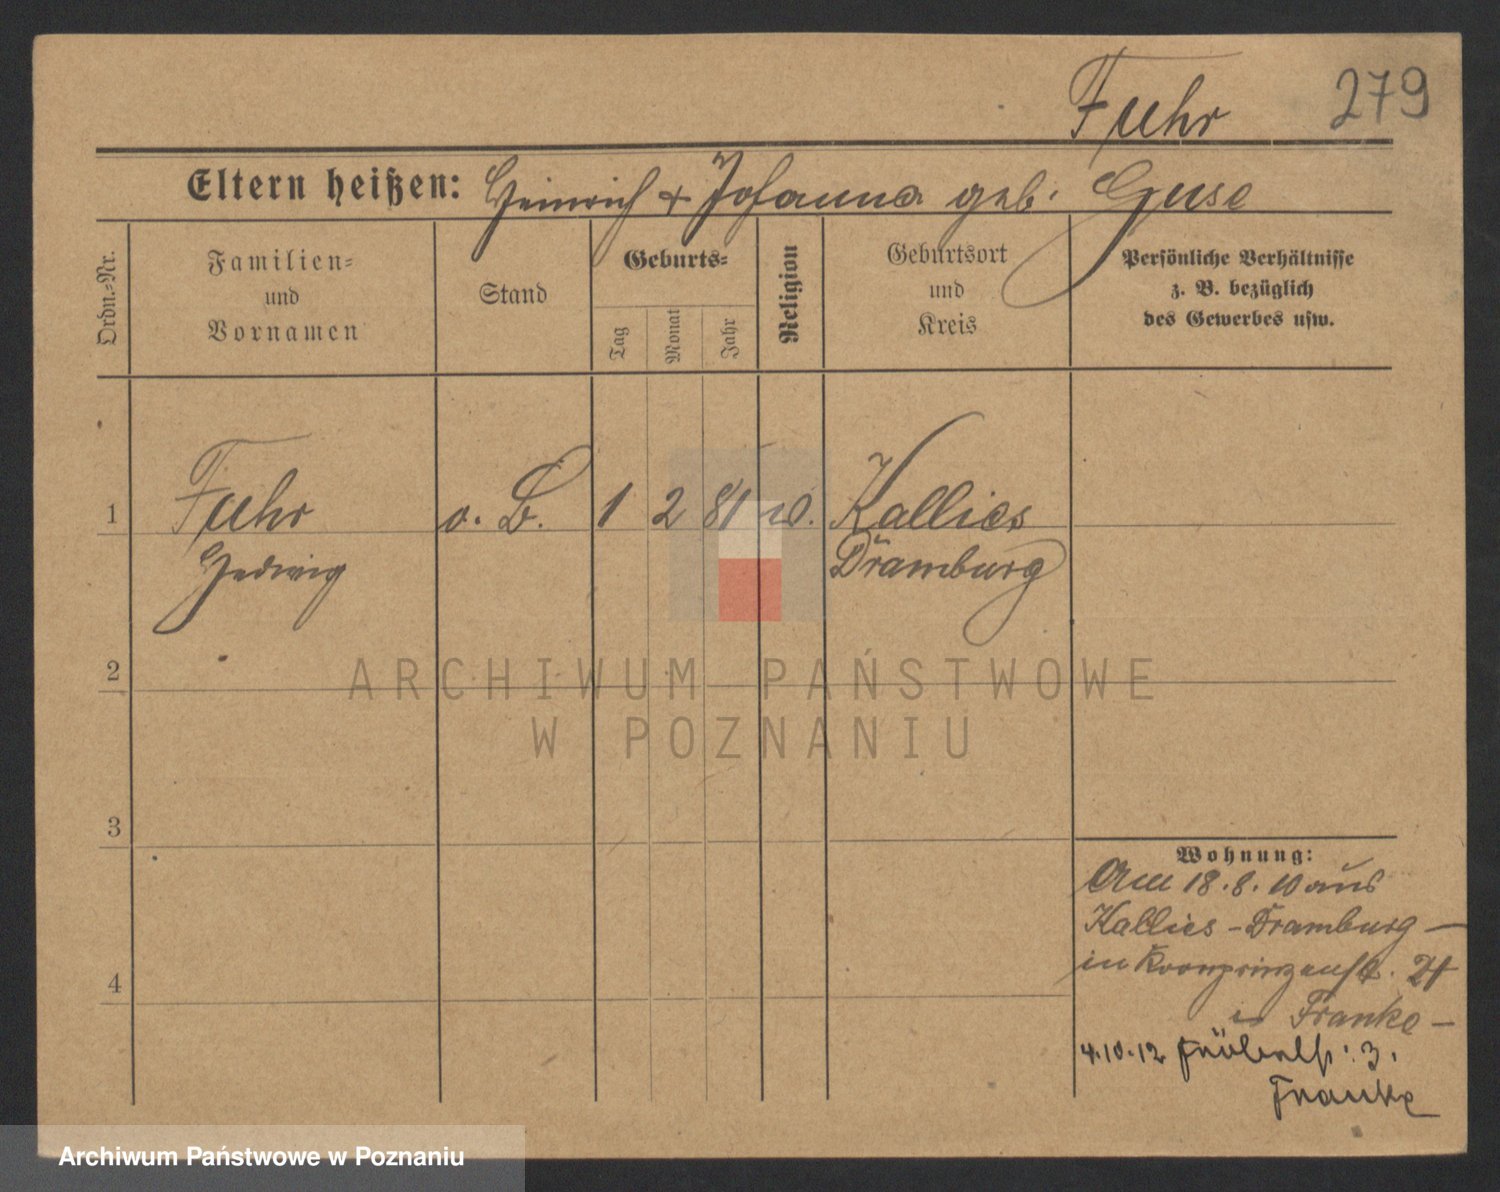 Fuhr 279
Eltern heißen: Heinrich + Johanna geb. Guse
Ordn.-Nr.
Familien-
und
Vornamen
Stand
Geburts-
Tag
Monat
Jahr
Religion
Geburtsort
und
Kreis
Persönliche Verhältnisse
z. B. bezüglich
des Gewerbes usw.
1 Fuhr o. B. 1 2 81 Kallies
Hedwig Dramburg
2
3
4
Wohnung:
Am 18.8.10 aus
Kallies - Dramburg -
in Kronprinzenst.
Franke -
4.10.12 3.
Franke
ARCHIWUM PAŃSTWOWE
W POZNANIU
Archiwum Państwowe w Poznaniu